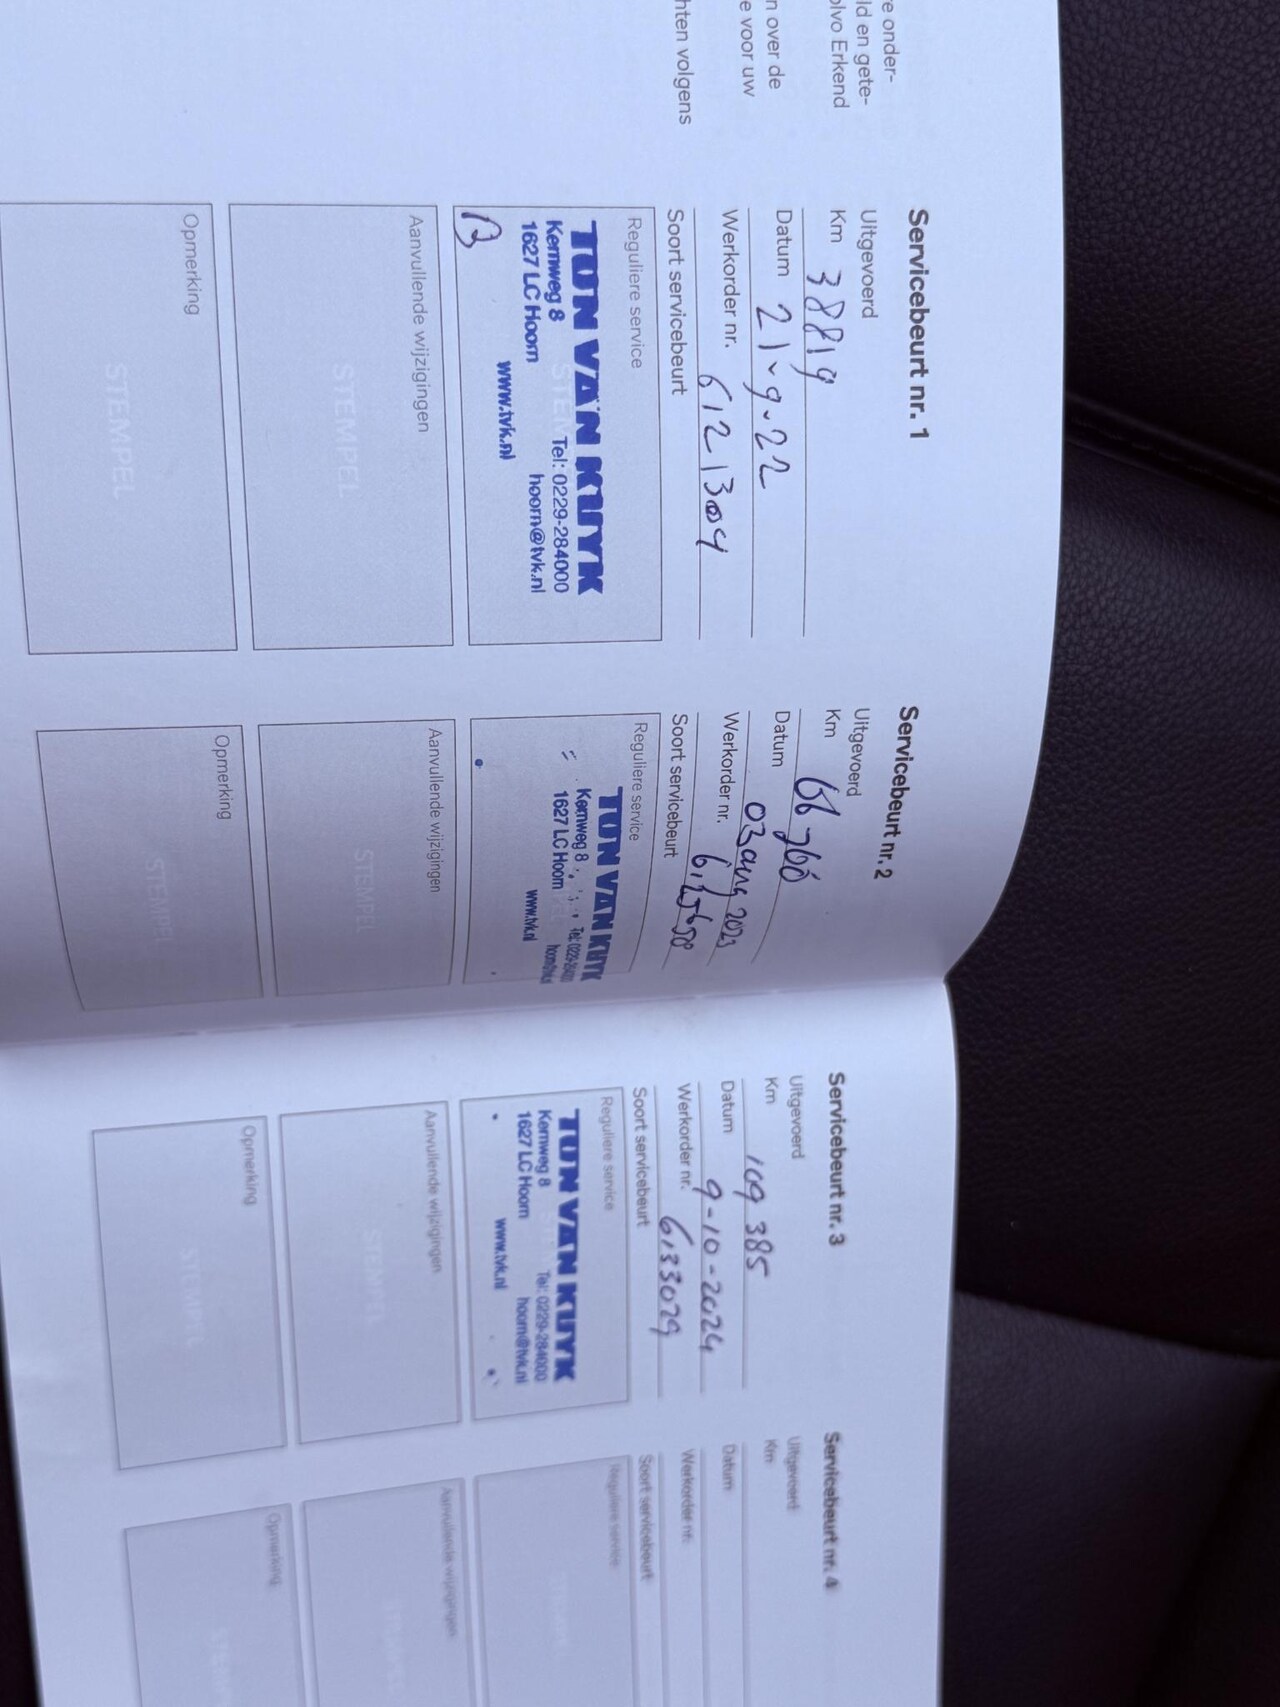 e onder-
ld en gete-
olvo Erkend
n over de
e voor uw
hten volgens
Servicebeurt nr. 1
Uitgevoerd
Km 38819
Datum 21-9-22
Werkorder nr. 6121304
Soort servicebeurt
Reguliere service
TON VAN KUYK
Kernweg 8 Tel: 0229-284000
1627 LC Hoorn hoorn@tvk.nl
www.tvk.nl
B
Aanvullende wijzigingen
STEMPEL
Opmerking
STEMPEL
Servicebeurt nr. 2
Uitgevoerd
Km
Datum 03 aug 2023
Werkorder nr.
Soort servicebeurt
Reguliere service
TON VAN KUYK
Kernweg 8
1627 LC Hoorn
www.tvk.nl
Aanvullende wijzigingen
STEMPEL
Opmerking
STEMPEL
Servicebeurt nr. 3
Uitgevoerd
Km 109 385
Datum 9-10-2024
Werkorder nr. 6133029
Soort servicebeurt
Reguliere service
TON VAN KUYK
Kernweg 8 Tel: 0229-284000
1627 LC Hoorn hoorn@tvk.nl
www.tvk.nl
Aanvullende wijzigingen
STEMPEL
Opmerking
STEMPEL
Servicebeurt nr. 4
Uitgevoerd
Km
Datum
Werkorder nr.
Soort servicebeurt
Reguliere service
Aanvullende wijzigingen
Opmerking